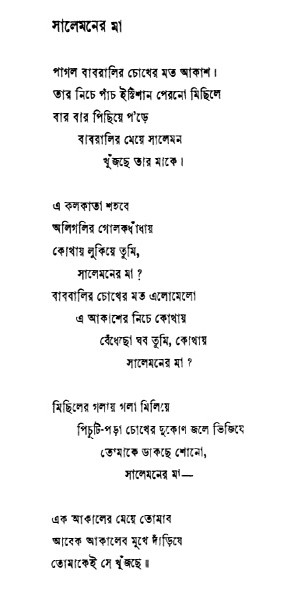 সালেমনের মা
পাগল বাবরালির চোখের মত আকাশ।
তার নিচে পাঁচ ইস্টিশান পেরনো মিছিলে
বার বার পিছিয়ে প'ড়ে
বাবরালির মেয়ে সালেমন
খুঁজছে তার মাকে।
এ কলকাতা শহরে
অলিগলির গোলকধাঁধায়
কোথায় লুকিয়ে তুমি,
সালেমনের মা ?
বাবরালির চোখের মত এলোমেলো
এ আকাশের নিচে কোথায়
বেঁধেছো ঘর তুমি, কোথায়
সালেমনের মা ?
মিছিলের গলায় গলা মিলিয়ে
পিচুটি-পড়া চোখের দুকোণ জলে ভিজিয়ে
তোমাকে ডাকছে শোনো,
সালেমনের মা—
এক আকালের মেয়ে তোমার
আরেক আকালের মুখে দাঁড়িয়ে
তোমাকেই সে খুঁজছে॥